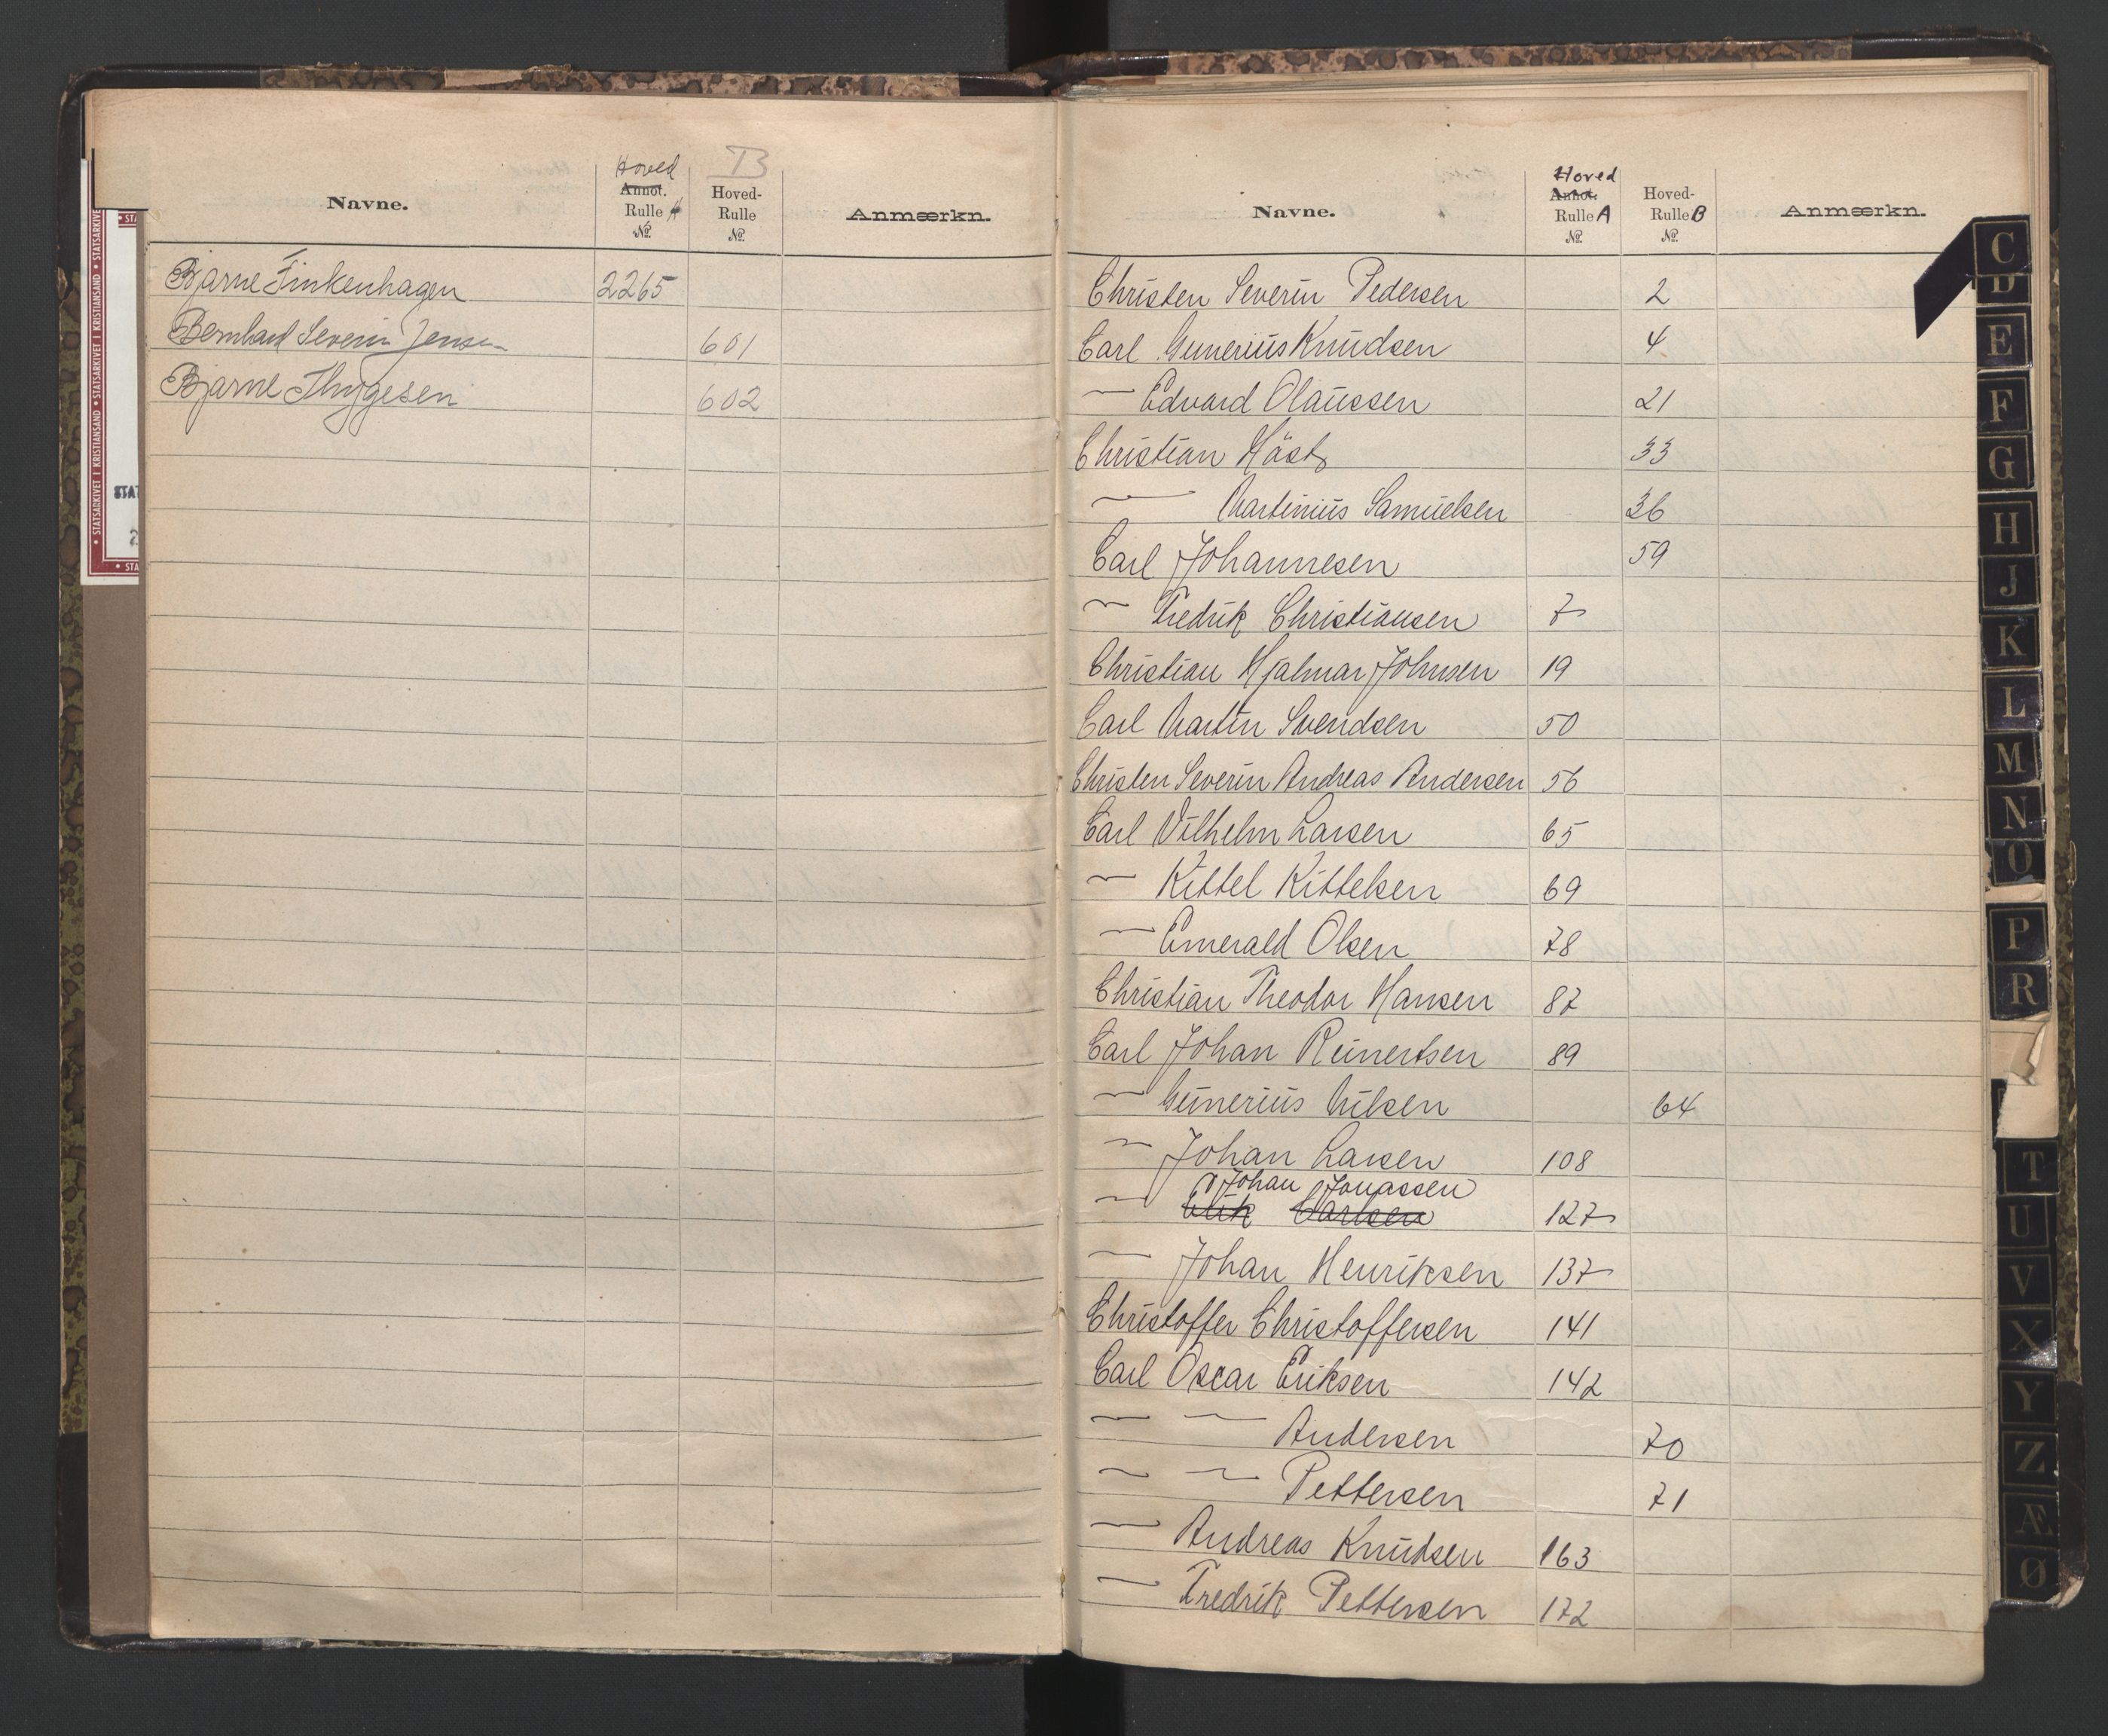 Navne. Hoved Annot. Rulle A № B Hoved-Rulle № Anmærkn.
Bjarne Finkenhagen 2265
Bernhard Severin Jensen 601
Bjarne Thygesen 602
Navne. Hoved Annot. Rulle A № Hoved-Rulle B № Anmærkn.
Christen Severin Pedersen 2
Carl Gunerius Knudsen 4
— Edvard Olaussen 21
Christian 33
— Martinius Samuelsen 36
Carl Johannesen 59
— Fredrik Christiansen 7
Christian Hjalmar Johnsen 19
Carl Martin Svendsen 50
Christen Severin Andreas Andersen 56
Carl Vilhelm Larsen 65
— Kittel Kittelsen 69
— Emerald Olsen 78
Christian Theodor Hansen 87
Carl Johan Reinertsen 89
— Gunerius Nilsen 64
— Johan Larsen 108
Johan Jonassen
— Erik Carlsen 127
— Johan Henriksen 137
Christoffer Christoffersen 141
Carl Oscar Eriksen 142
— — Andersen 70
— — Pettersen 71
— Andreas Knudsen 163
— Fredrik Pettersen 172
C
D
E
F
G
H
J
K
L
M
N
O
P
R
T
U
V
X
Y
Z
Æ
Ø
STATSARKIVET I KRISTIANSAND • STATSARKIVET I KRISTIANSAND • STATSARKIVE